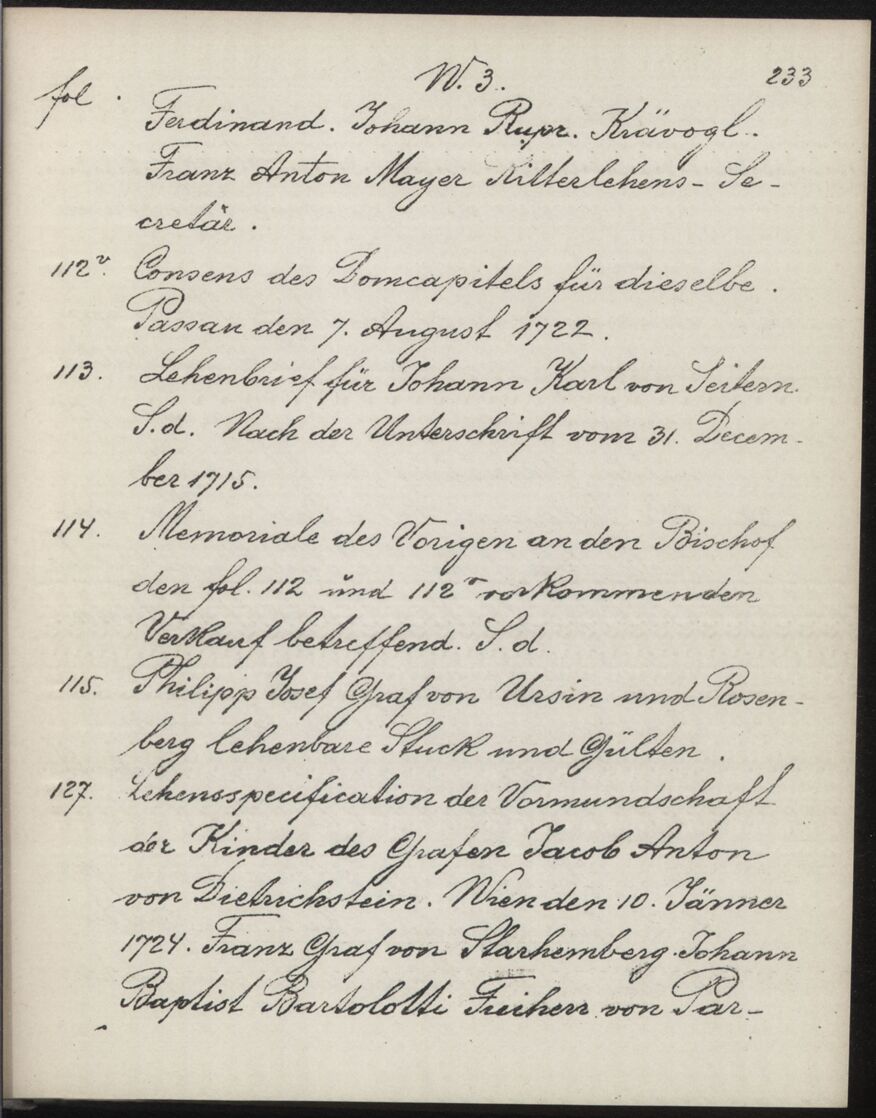 W. 3. 233
fol.
Ferdinand. Johann Rupr. Krävogl.
Franz Anton Mayer Ritterlehens- Se-
cretär.
112v. Consens des Domcapitels für dieselbe.
Passau den 7. August 1722.
113. Lehenbrief für Johann Karl von Seitern.
S.d. Nach der Unterschrift vom 31. Decem-
ber 1715.
114. Memoriale des Vorigen an den Bischof
den fol. 112 und 112v vorkommenden
Verkauf betreffend. S. d.
115. Philipp Josef Graf von Ursin und Rosen-
berg lehenbare Stuck und Gülten.
127. Lehensspecification der Vormundschaft
der Kinder des Grafen Jacob Anton
von Dietrichstein. Wien den 10. Jänner
1724. Franz Graf von Starhemberg. Johann
Baptist Bartolotti Freiherr von Par-